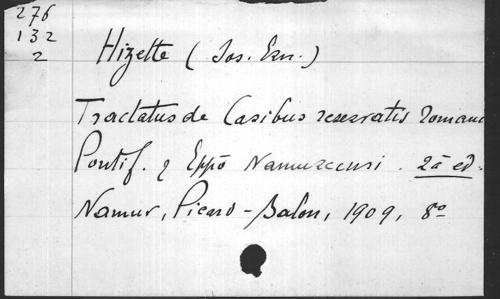 276
132
2
Hizette (Jos. Ern.)
Tractatus de Casibus reservatis Romano
Pontif. & Eppō Namurcensi. 2ª ed.
Namur, Picard-Balon, 1909, 8º